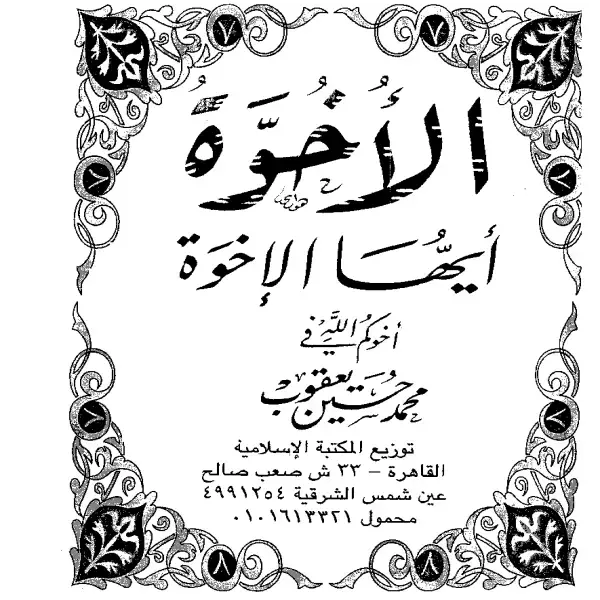 الأُخُوَّةُ
أَيُّهَا الإِخْوَة
أخوكم في اللَّهِ
محمد حسين يعقوب
توزيع المكتبة الإسلامية
القاهرة - ٣٣ ش صعب صالح
عين شمس الشرقية ٤٩٩١٢٥٤
محمول ٠١٠١٦١٣٣٢١